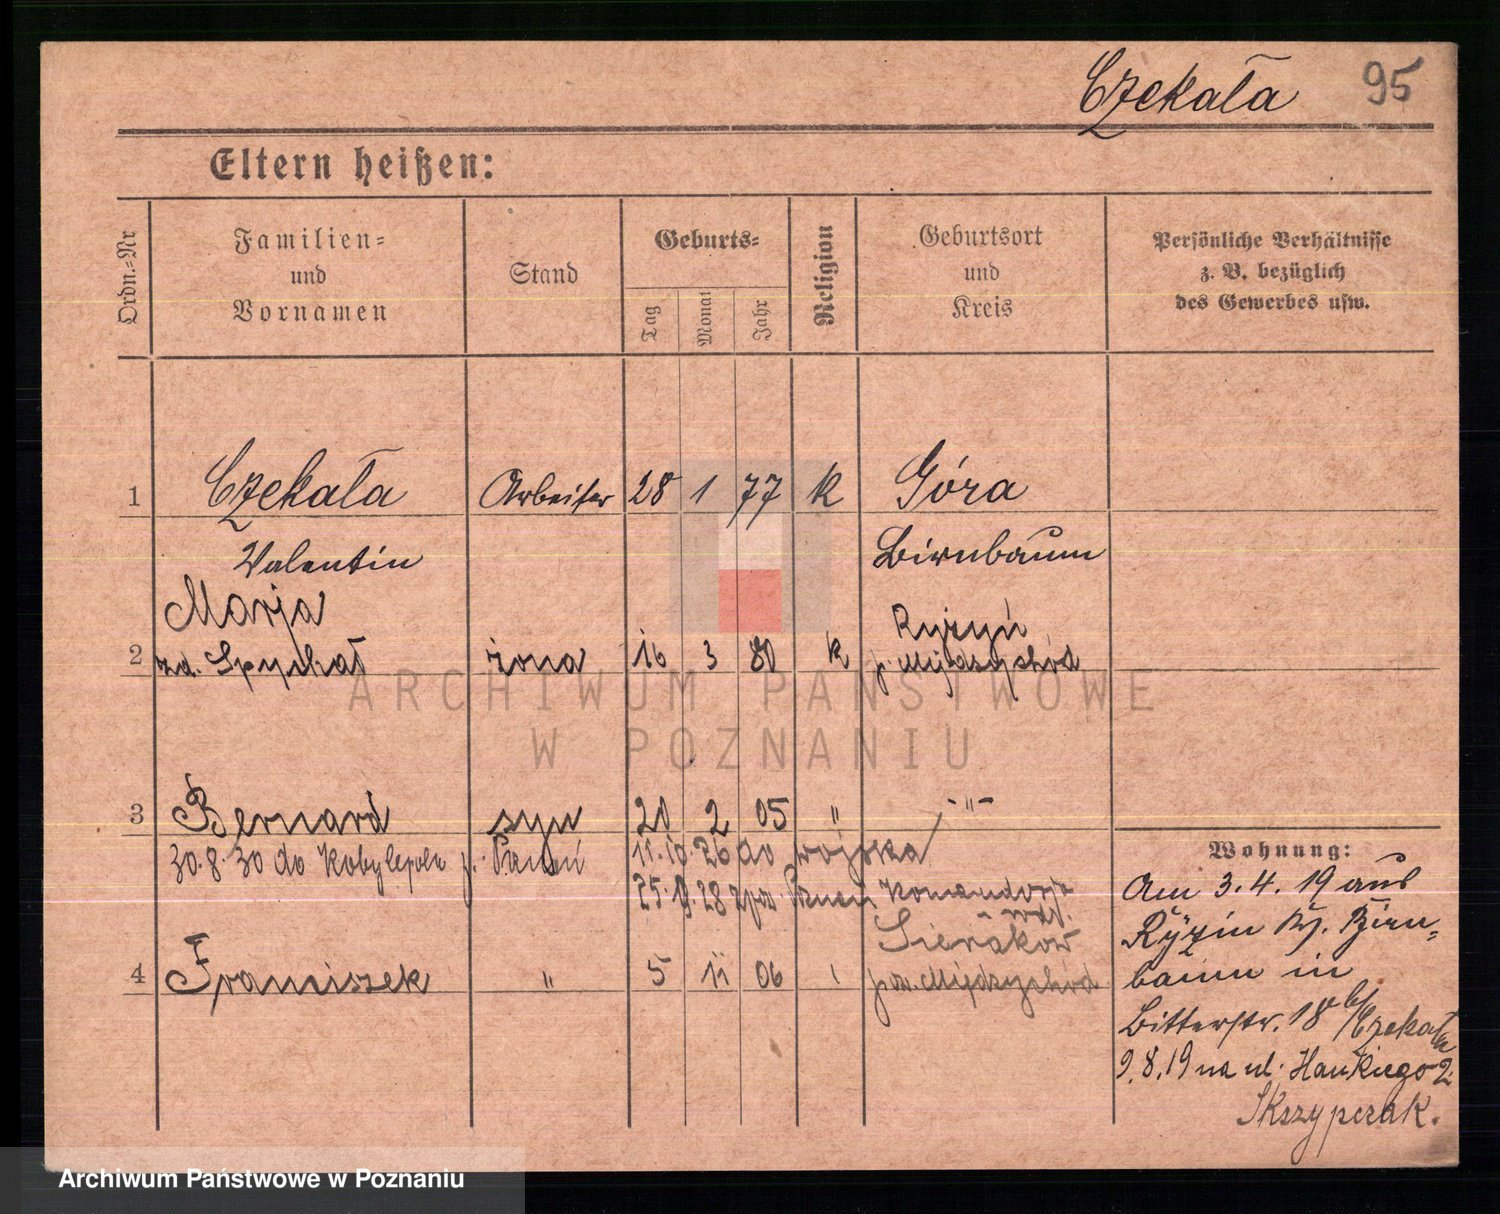 Czekała 95
Eltern heißen:
Ordn.=Nr
Familien=
und
Vornamen
Stand
Geburts=
Tag
Monat
Jahr
Religion
Geburtsort
und
Kreis
Persönliche Verhältnisse
z. B. bezüglich
des Gewerbes usw.
1 Czekała Arbeiter 28 1 77 k Góra
Valentin Birnbaum
Marja Ryżyń
2 zd. Spychał żona 16 3 80 k p. Międzychód
3 Bernard syn 20 2 05 " -"-
30.8.30 do Kobylepole p. Poznań 11.10.26 do wojska
28 Poznań Komendy
Sieraków
4 Franciszek " 5 11 06 Międzychód
Wohnung:
Am 3.4.19 aus
Ryżin Kr. Birn=
baum in
Bitterstr. 18 b/Czekała
9.8.19 na ul. Haukiego 2
Skszypczak.
ARCHIWUM PAŃSTWOWE
W POZNANIU
Archiwum Państwowe w Poznaniu